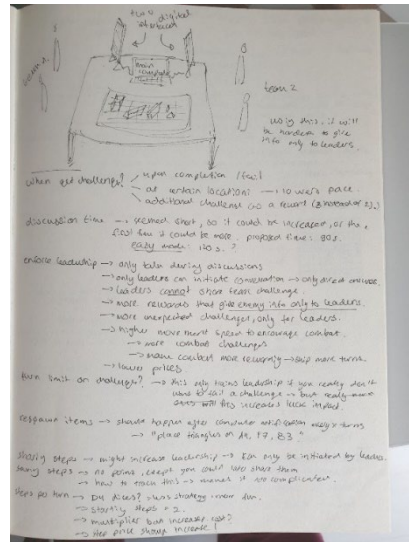 two digital
interfaces
main
computer
team 1
team 2
using this, it will
be harder to give
info only to leaders.
when get challenge?
upon completion / fail
at certain locations → 10 were place.
additional challenge as a reward
discussion time → seemed short, so it could be increased, or the
first few it could be more. proposed time: 90s.
easy mode: 120s.?
enforce leadership → only talk during discussions
→ only leaders can initiate conversation → only direct answers.
→ leaders cannot share team challenge.
→ more rewards that give enemy info only to leaders.
→ more unexpected challenges, only for leaders.
→ higher movement speed to encourage combat.
→ more combat challenges
→ make combat more rewarding → skip more turns.
→ lower prices
turn limit on challenge? → this only trains leadership if you really don't
want to fail a challenge → but
this increases luck impact.
respawn items → should happen after computer notification every x turns
→ "place triangles on 42, 17, 83."
sharing steps → might increase leadership → can only be initiated by leader.
saving steps → no points, except you could also share them
→ how to track this → manual is too complicated.
steps per turn → D4 dices? → less strategy, more fun.
→ starting steps = 2.
→ multiplier that increases cost?
→ step price should increase!